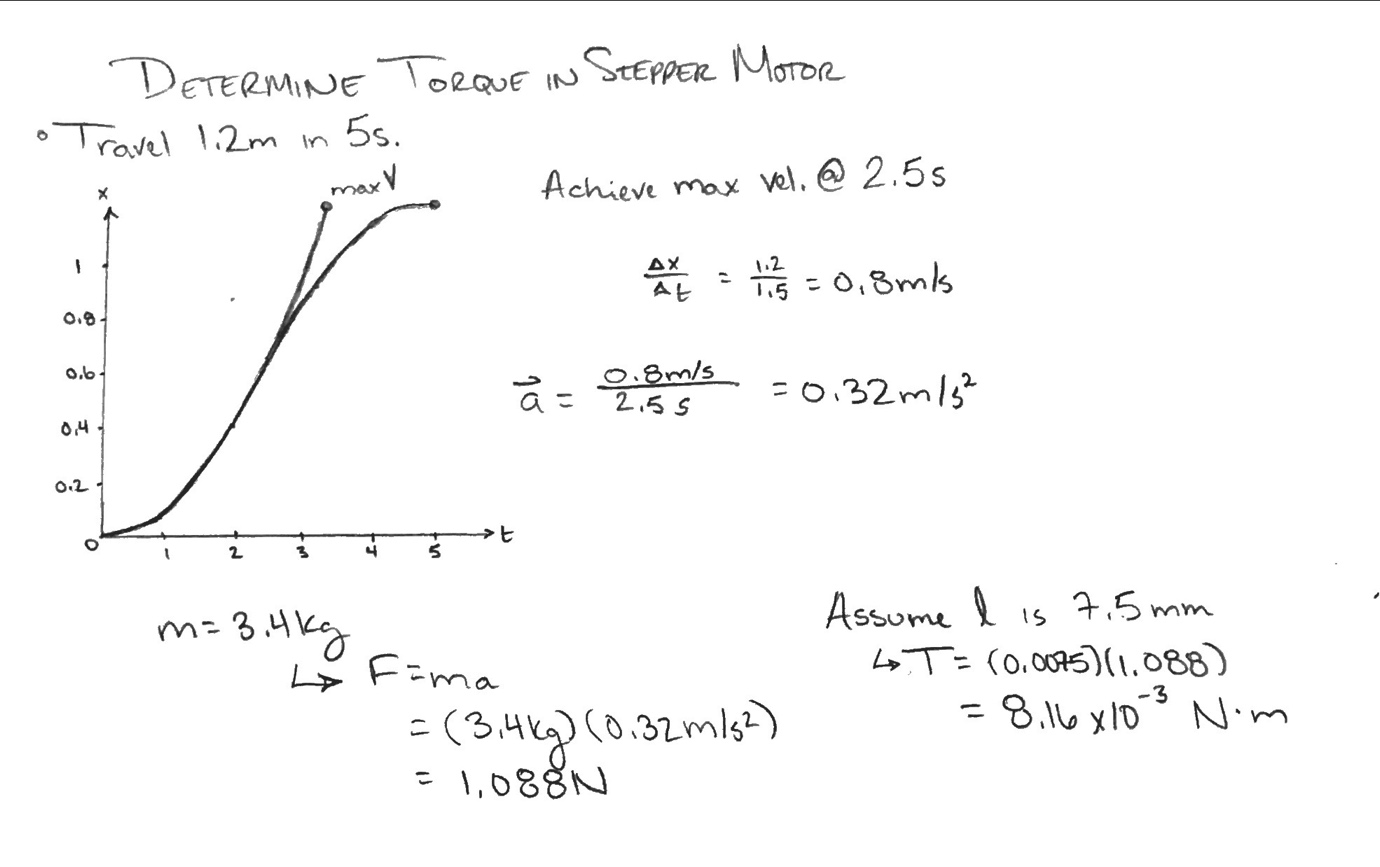 DETERMINE TORQUE IN STEPPER MOTOR
° Travel 1.2m in 5s.
x
max V
1
0.8
0.6
0.4
0.2
0
1 2 3 4 5
t
Achieve max vel. @ 2.5s
Δx/Δt = 1.2/1.5 = 0.8m/s
a⃗ = 0.8m/s / 2.5 s = 0.32m/s²
m= 3.4kg
↳ F=ma
= (3.4kg)(0.32m/s²)
= 1.088N
Assume l is 7.5mm
↳ T= (0.0075)(1.088)
= 8.16 x10⁻³ N·m